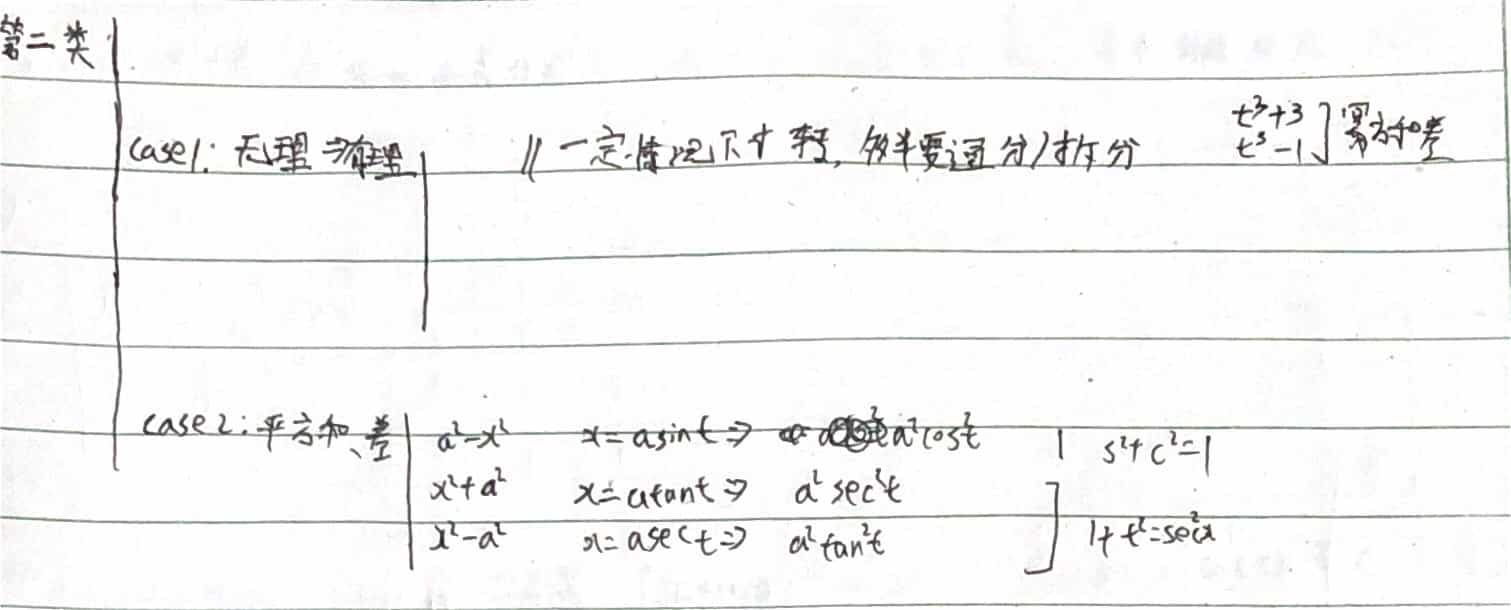 第二类
t³+3
case1: 无理⇒有理 // 一定情况下才转, 多半要通分/拆分 t³-1 ] 幂方和差
case2: 平方和、差 a²-x² x=asint⇒ a²cos²t | s²+c²=1
x²+a² x=atant⇒ a²sec²t
x²-a² x=asect⇒ a²tan²t ] 1+t²=sec²x